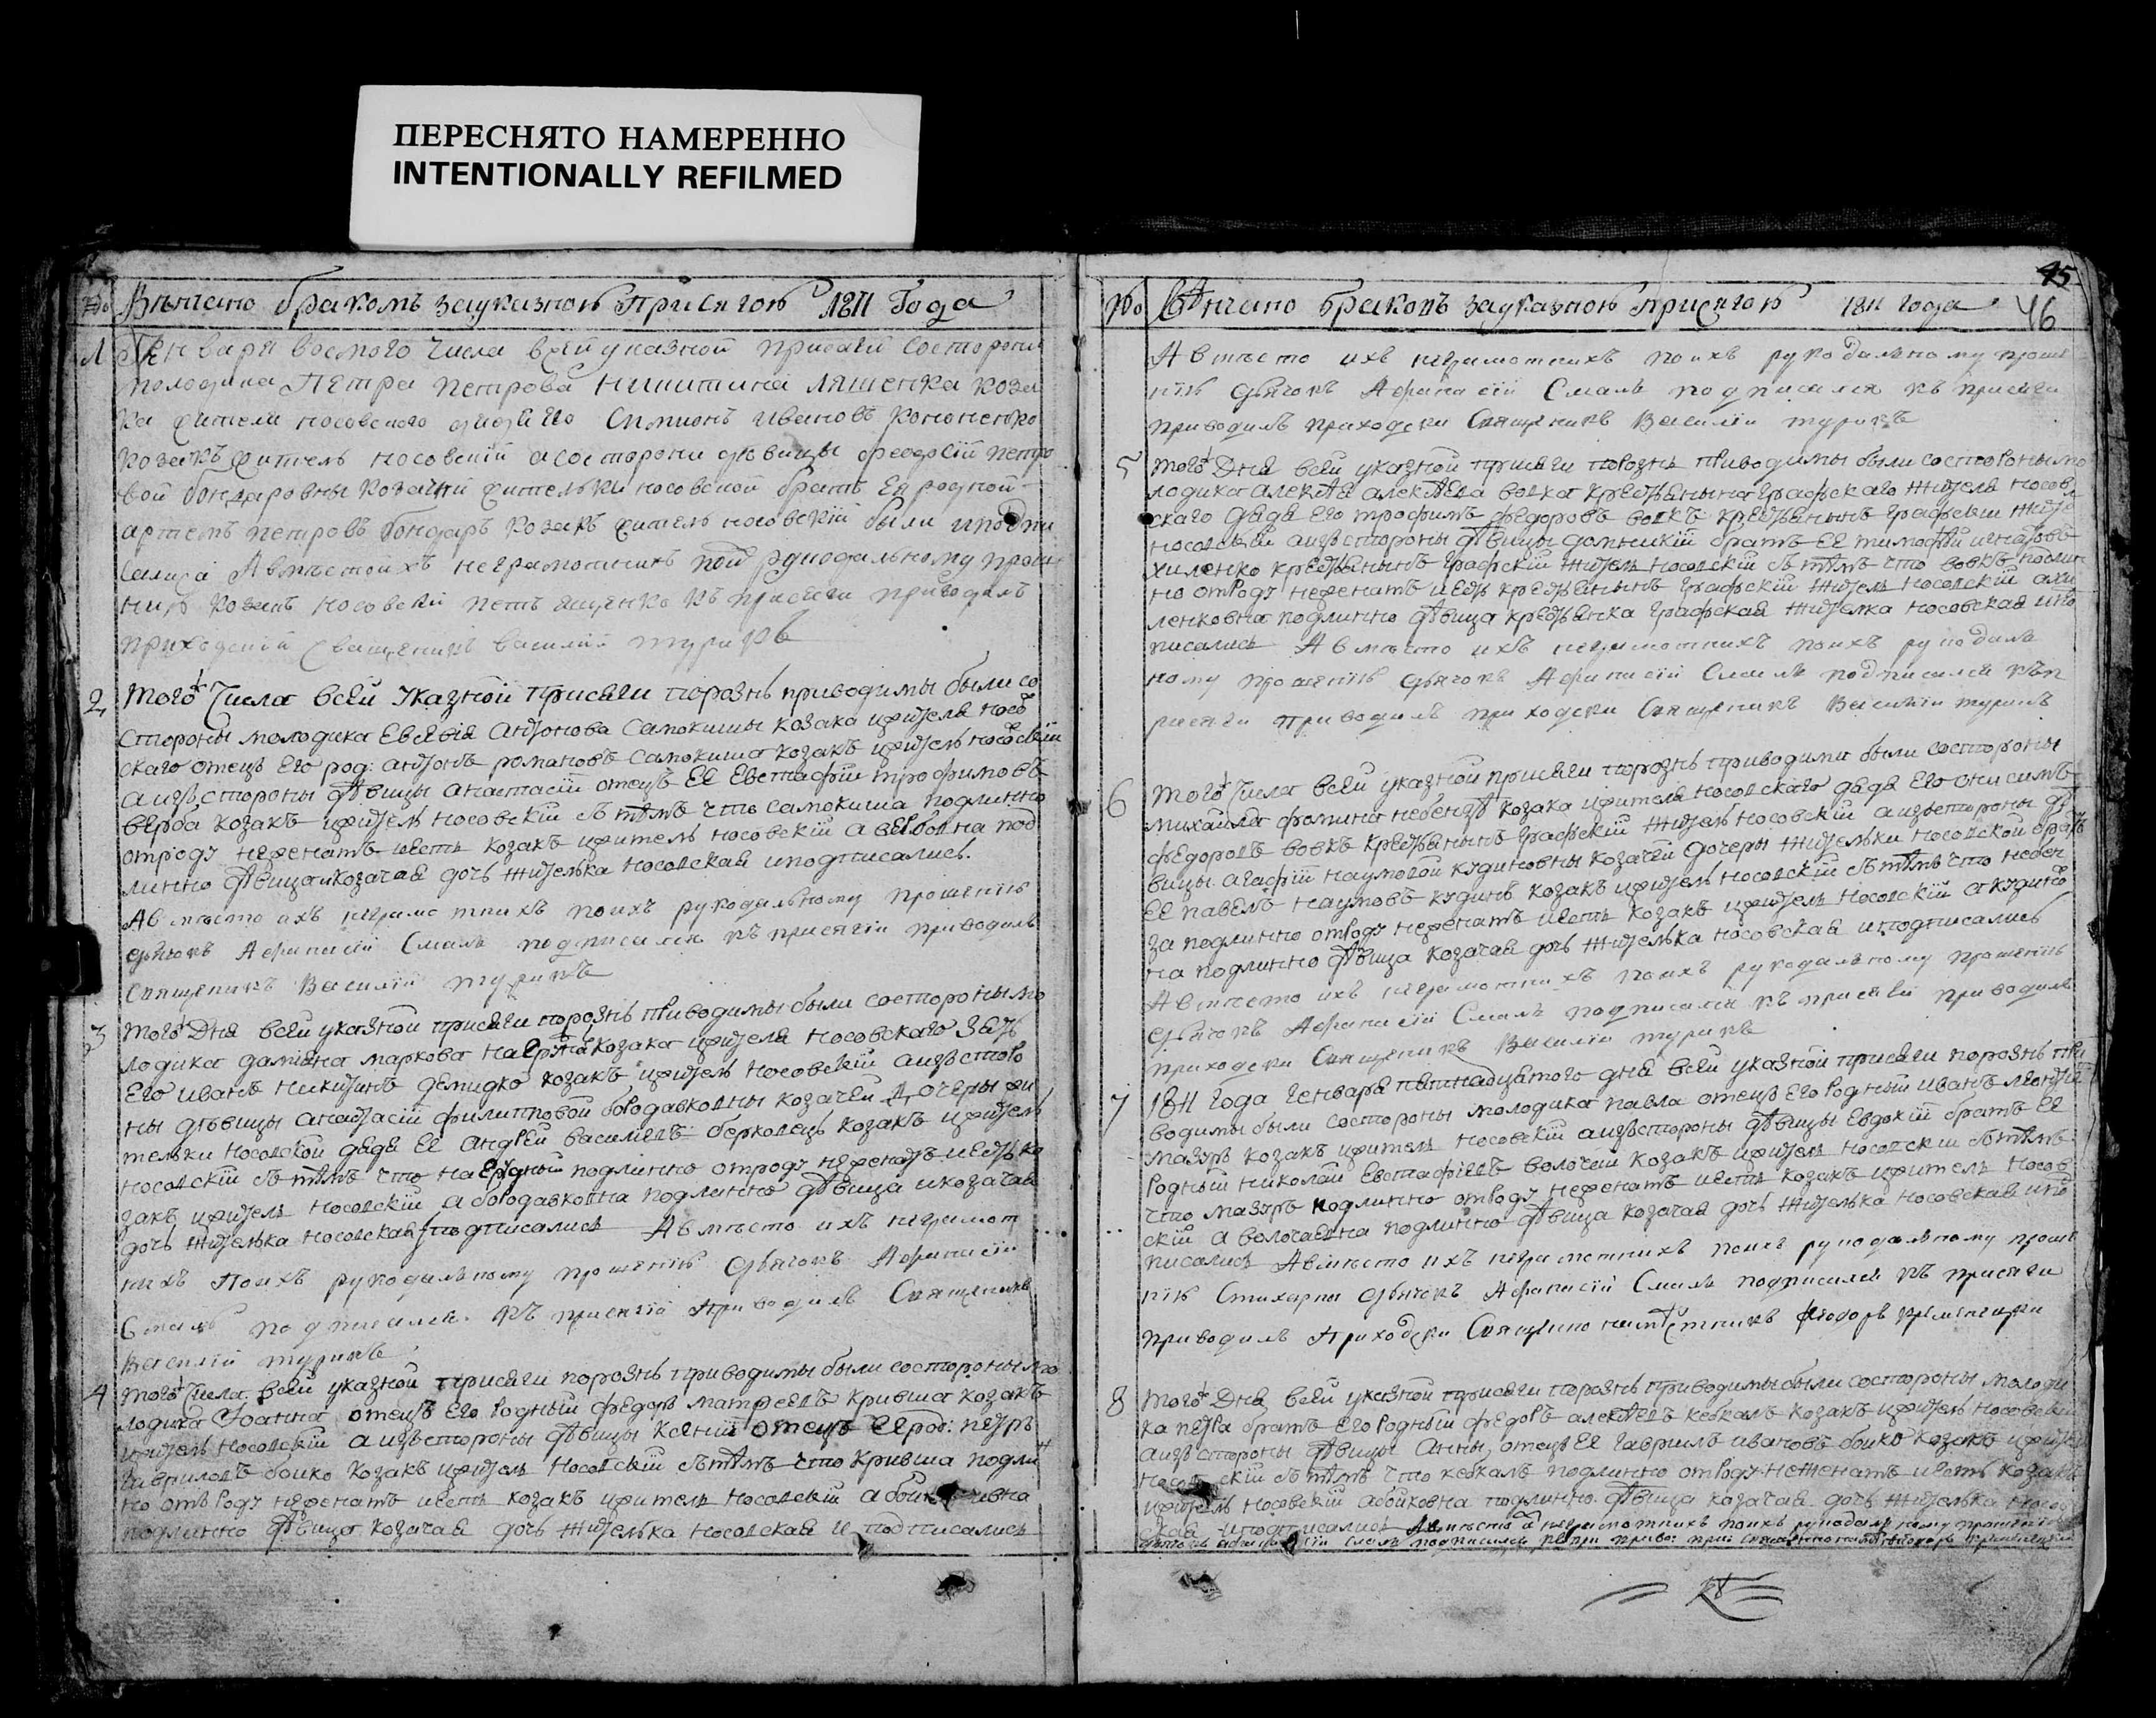 ПЕРЕСНЯТО НАМЕРЕННО
INTENTIONALLY REFILMED
№ Вѣнчано бракомъ за указною присягою 1811 года
1 Генваря восмого числа всей указной присяги состороны
молодика Петра Петрова Никитина Ляшенка коза
ка жителя носовского Симионъ Ивановъ Кононенко
козакъ житель носовскій а состорони дѣвицы Феодосій Петро
вой бондаровны козачки жительки носовской братъ Ея родной
артемъ петровъ бондаръ козакъ житель носовскій были и подпи
салися А вмѣсто ихъ неграмотнихъ по рукодальному проше
нию козакъ носовскій приводилъ
приходскій священикъ василій турикъ
2 Того числа всей указной присяги порознь приводимы были со
стороны молодика Евсевія Антонова самокишы козака и жителя носов
скаго отецъ Его род: антонъ романовъ самокиша козакъ и житель носовскій
а изъ стороны дѣвицы анастасій отецъ Ее Евстафій трофимовъ
верба козакъ и житель носовскій въ томъ что самокиша подлинно
отроду неженатъ и есть козакъ и житель носовскій а вербовна под
линно дѣвица и козачая дочь жителька носовская и подписались.
А вмѣсто ихъ неграмотнихъ поихъ рукодальному прошенію
дьячокъ Афанасій Смаль подписался къ присягіи приводилъ
священикъ Василій турикъ
3 Того Дня всей указной присяги порознь приводимы были состороны мо
лодика дамяна маркова козака и жителя носовского зять
Его иванъ никитинъ демидко козакъ и житель носовскій а изъ сторо
ны дѣвицы анастасій филипповой бородавковны козачей дочеры жи
тельки носовской дядя Ее андрей василіевъ берковець козакъ и житель
носовскій въ томъ что подлинно отроду неженатъ и есть ко
закъ и житель носовскій а бородавковна подлинно дѣвица и козачая
дочь жителька носовская и подписались А вмѣсто ихъ неграмот
нихъ поихъ рукодальному прошенію дьячокъ Афанасій
Смаль подписался къ присягіи приводилъ Священикъ
Василій турикъ
4 Того числа всей указной присяги порознь приводимы были состороны мо
лодика Іоанна отецъ Его родный федоръ матвеевъ Кривша козакъ
и житель носовскій а изъ стороны дѣвицы Ксеній отецъ Ее род: петръ
гавриловъ бойко козакъ и житель носовскій въ томъ что Кривша подлин
но отъ роду неженатъ и есть козакъ и житель носовскій а бойковна
подлинно дѣвица козачая дочь жителька носовская и подписались
45
№ Вѣнчано бракомъ за указною присягою 1811 года 46
А вмѣсто ихъ неграмотнихъ поихъ рукодальному проше
нію дьячокъ Афанасій Смаль подписался къ присяги
приводилъ приходски Священикъ Василій турикъ
5 Того Дня всей указной присяги порознь приводимы были состороны мо
лодика алексѣя алексѣева вовка крестьянына графскаго жителя носов
скаго дядя Его трофимъ федоровъ вовкъ крестьянынъ графскій житель
носовскій а изъ стороны дѣвицы домникій братъ Ее тимофей игнатовъ
хиленко крестьянынъ графскій житель носовскій въ томъ что вовкъ подлин
но отроду неженатъ и есть крестьянынъ графскій житель носовскій а хи
ленковна подлинно дѣвица крестьянка графская жителка носовская и по
писались А вмѣсто ихъ неграмотнихъ поихъ рукодаль
ному прошенію дьячокъ Афанасій Смаль подписался къ п
рисяги приводилъ приходски Священикъ Василій турикъ
6 Того числа всей указной присяги порознь приводими были состороны
михаила фомина небензѣ козака и жителя носовскаго дядя Его онисимъ
федоровъ вовкъ крестьянынъ графскій житель носовскій а изъ стороны дѣ
вицы агафій наумовой кудиновны козачей дочеры жительки носовской братъ
Ее павелъ наумовъ кудинъ козакъ и житель носовскій въ томъ что небен
за подлинно отроду неженатъ и есть козакъ и житель носовскій а кудинов
на подлинно дѣвица козачая дочь жителька носовская и подписались
А вмѣсто ихъ неграмотнихъ поихъ рукодальному прошенію
дьячокъ Афанасій Смаль подписался къ присяги приводилъ
приходски Священикъ Василій турикъ
7 1811 года генваря пятнадцатого дня всей указной присяги порознь при
водимы были состороны молодика павла отецъ Его родный иванъ леонтій
мазуръ козакъ житель носовскій а изъ стороны дѣвицы Евдокій братъ Ее
родный николай Евстафіевъ волочай козакъ и житель носовскій въ томъ
что мазуръ подлинно отроду неженатъ и есть козакъ и житель носов
скій а волочаевна подлинно дѣвица козачая дочь жителька носовская и по
писались А вмѣсто ихъ неграмотнихъ поихъ рукодальному проше
нію Стихарни дьячокъ Афанасій Смаль подписался къ присяги
приводилъ приходски Священо намѣстникъ Феодоръ
8 Того Дня всей указной присяги порознь приводимы были состороны молоди
ка петра братъ Его родный федоръ алексѣевъ кебкалъ козакъ и житель носовскій
а изъ стороны дѣвицы Анны отецъ Ее гаврилъ ивановъ бойко козакъ и житель
носовскій въ томъ что кебкалъ подлинно отроду неженатъ и есть козакъ
и житель носовскій а бойковна подлинно дѣвица козачая дочь жителька носов
ская и подписались А вмѣсто неграмотнихъ поихъ рукодальному прошенію
дьячокъ Афанасій Смаль подписался